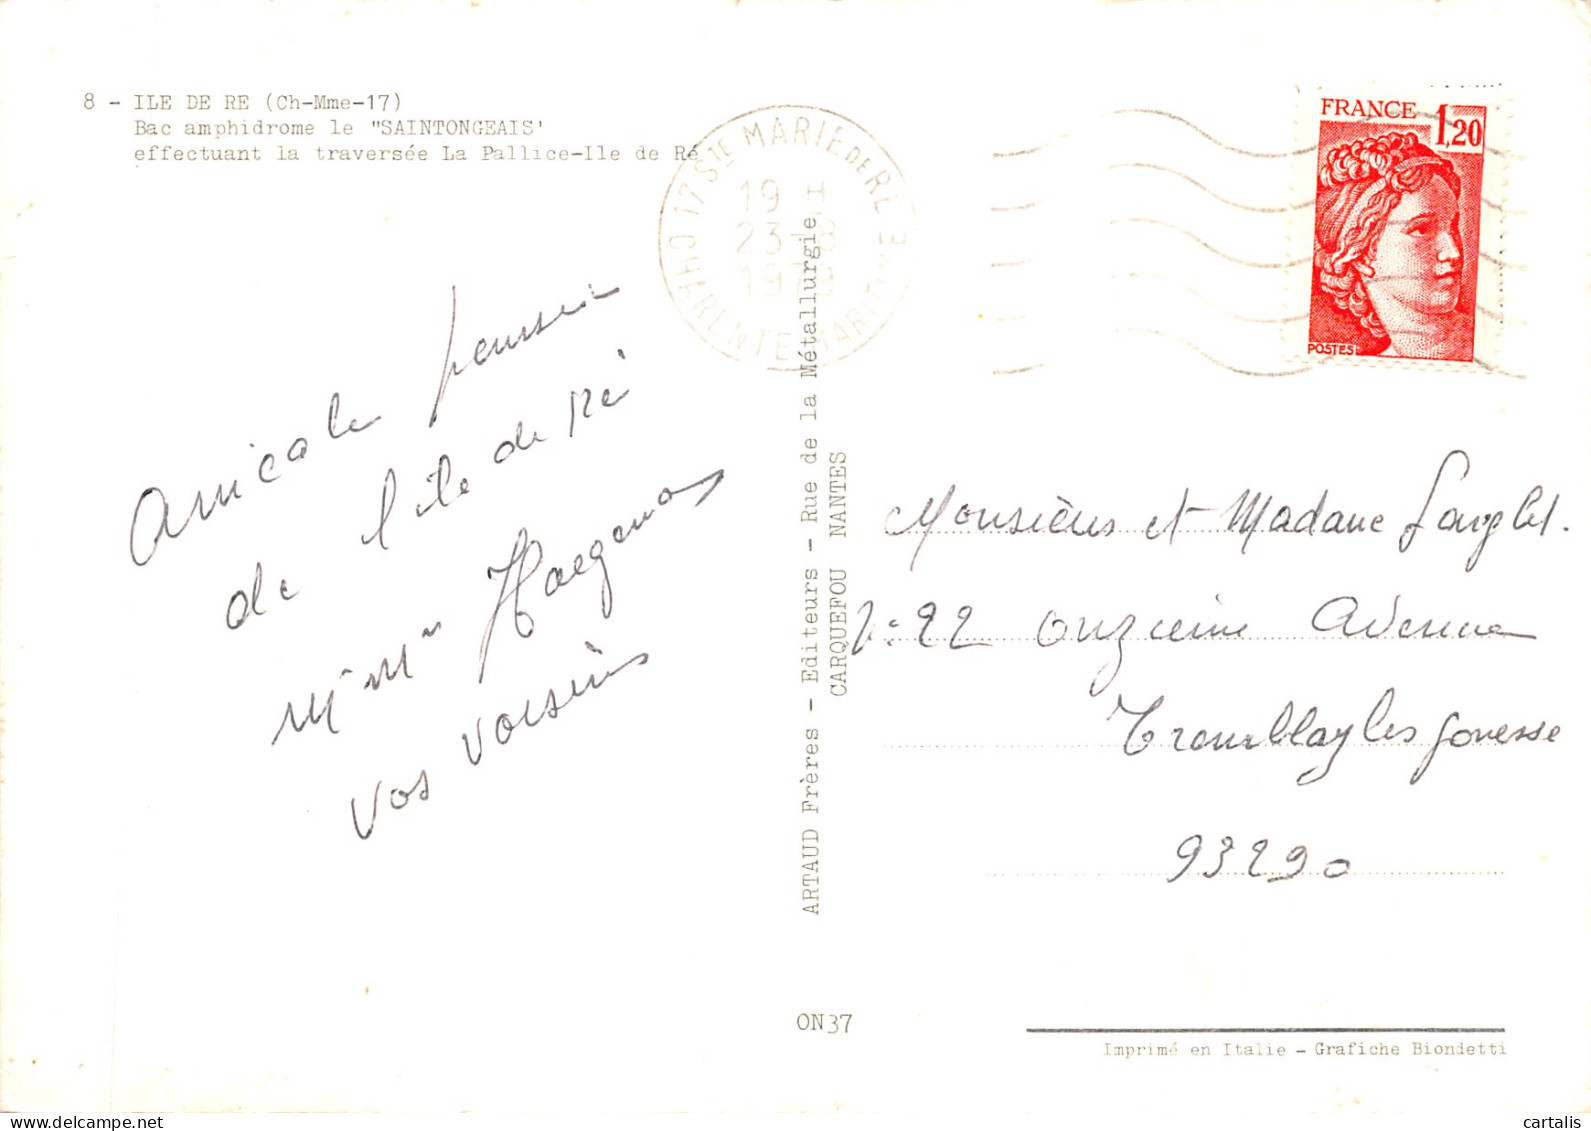 8 - ILE DE RE (Ch-Mme-17)
Bac amphidrome le "SAINTONGEAIS'
effectuant la traversée La Pallice-Ile de Ré
17 STE MARIE DE RE
CHARENTE MARITIME
19 H
23 - 8
19
FRANCE 1,20
POSTES
Amicale pensée
de l'ile de Ré
Mr Mme Haegeman
vos voisins
ARTAUD Frères - Editeurs - Rue de la Métallurgie
CARQUEFOU NANTES
Monsieur et Madame Langlet.
22 onzieme Avenue
Tremblay les gonesse
93290
ON37
Imprimé en Italie - Grafiche Biondetti
cartalis